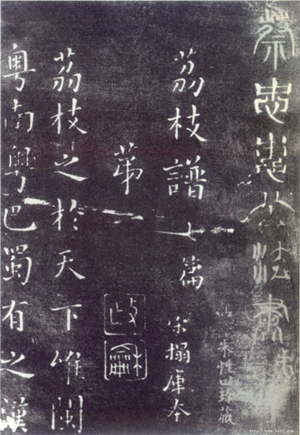 蔡忠惠公法書
荔枝譜七篇
宋搨庫本
苐一
政龢
荔枝之於天下唯閩
粵南粵巴蜀有之漢